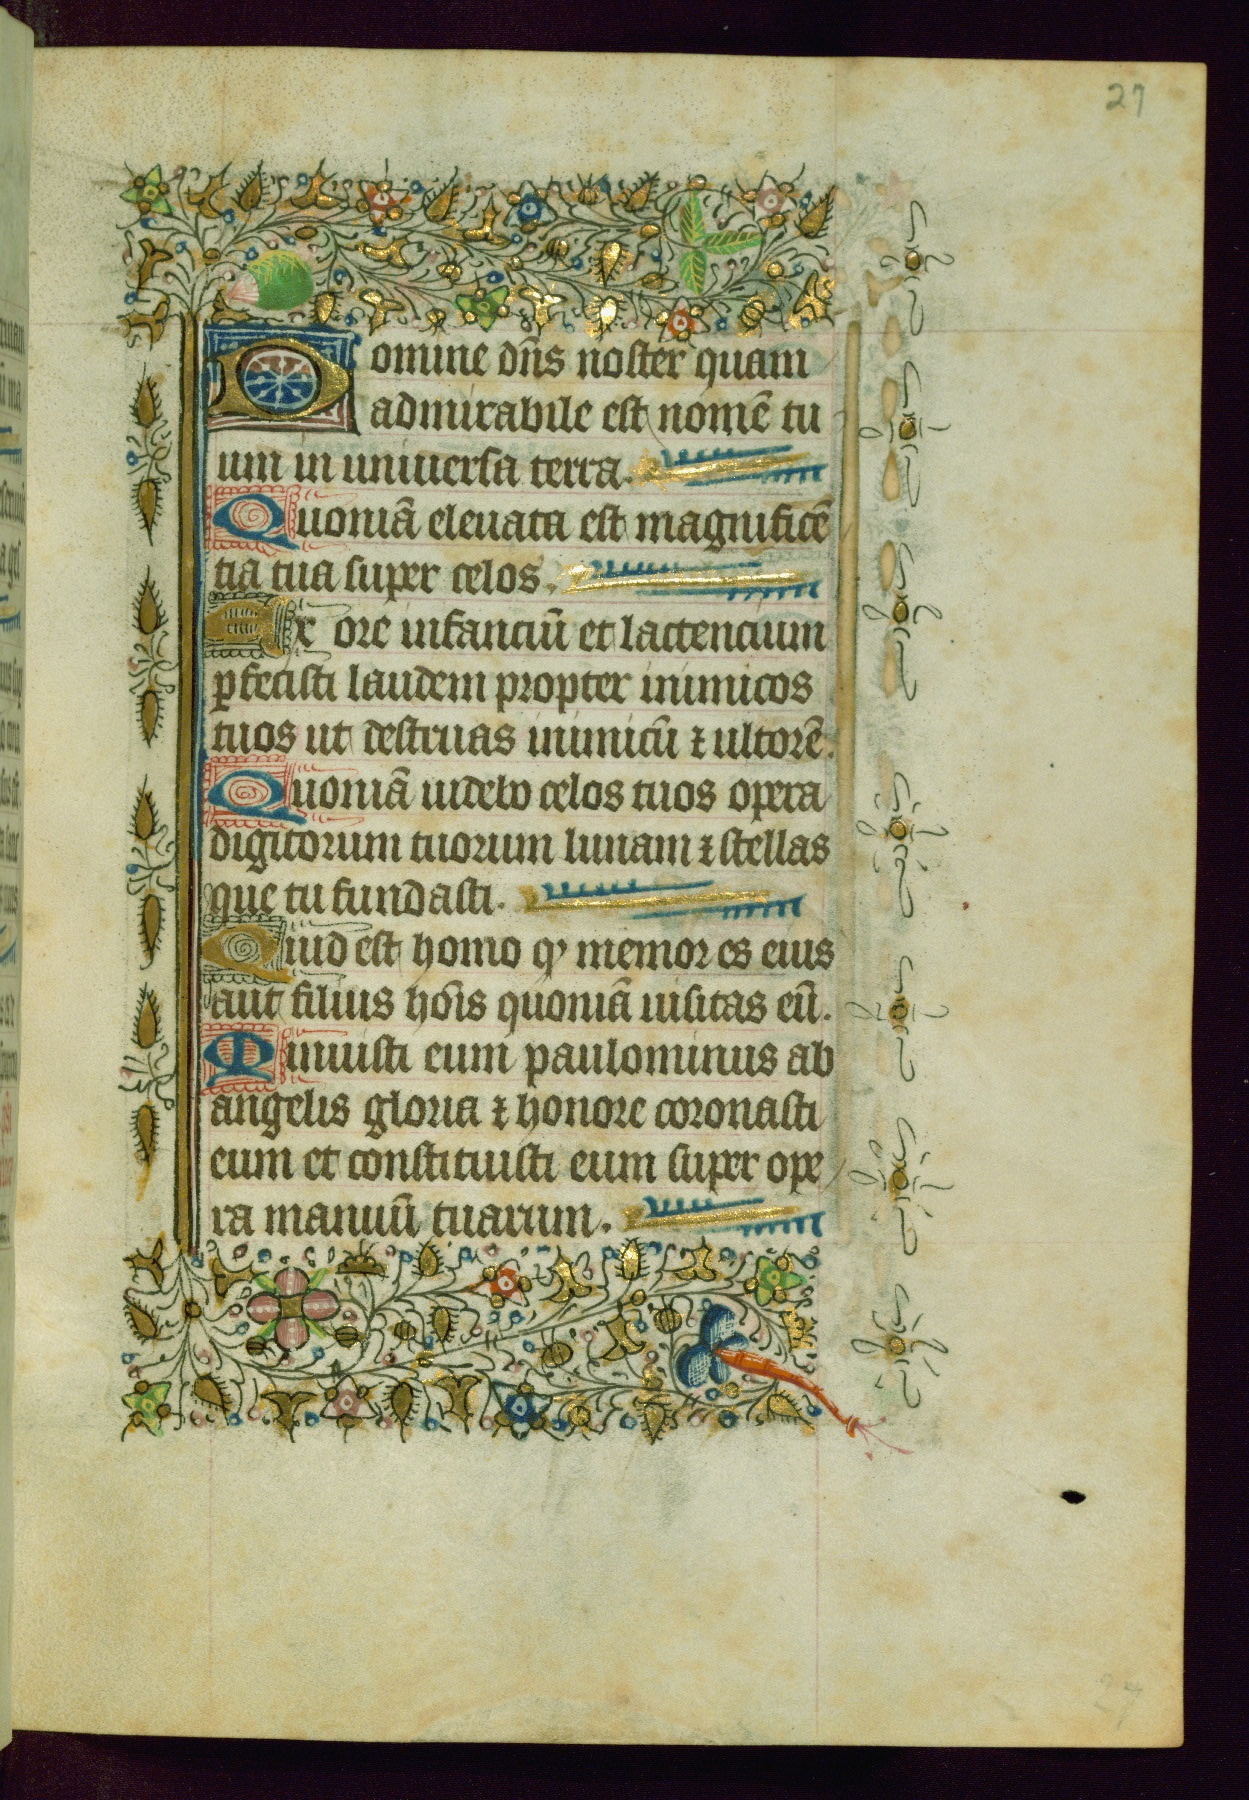 27
Domine dn̄s noster quam
admirabile est nomē tu
um in uniuersa terra.
Quoniā eleuata est magnificē
tia tua super celos.
Ex ore infanciū et lactencium
ꝑfecisti laudem propter inimicos
tuos ut destruas inimicū ⁊ ultorē.
Quoniā uidebo celos tuos opera
digitorum tuorum lunam ⁊ stellas
que tu fundasti.
Quid est homo ꝙ memor es eius
aut filius hoīs quoniā uisitas eū.
Minuisti eum paulominus ab
angelis gloria ⁊ honore coronasti
eum et constituisti eum super ope
ra manuū tuarum.